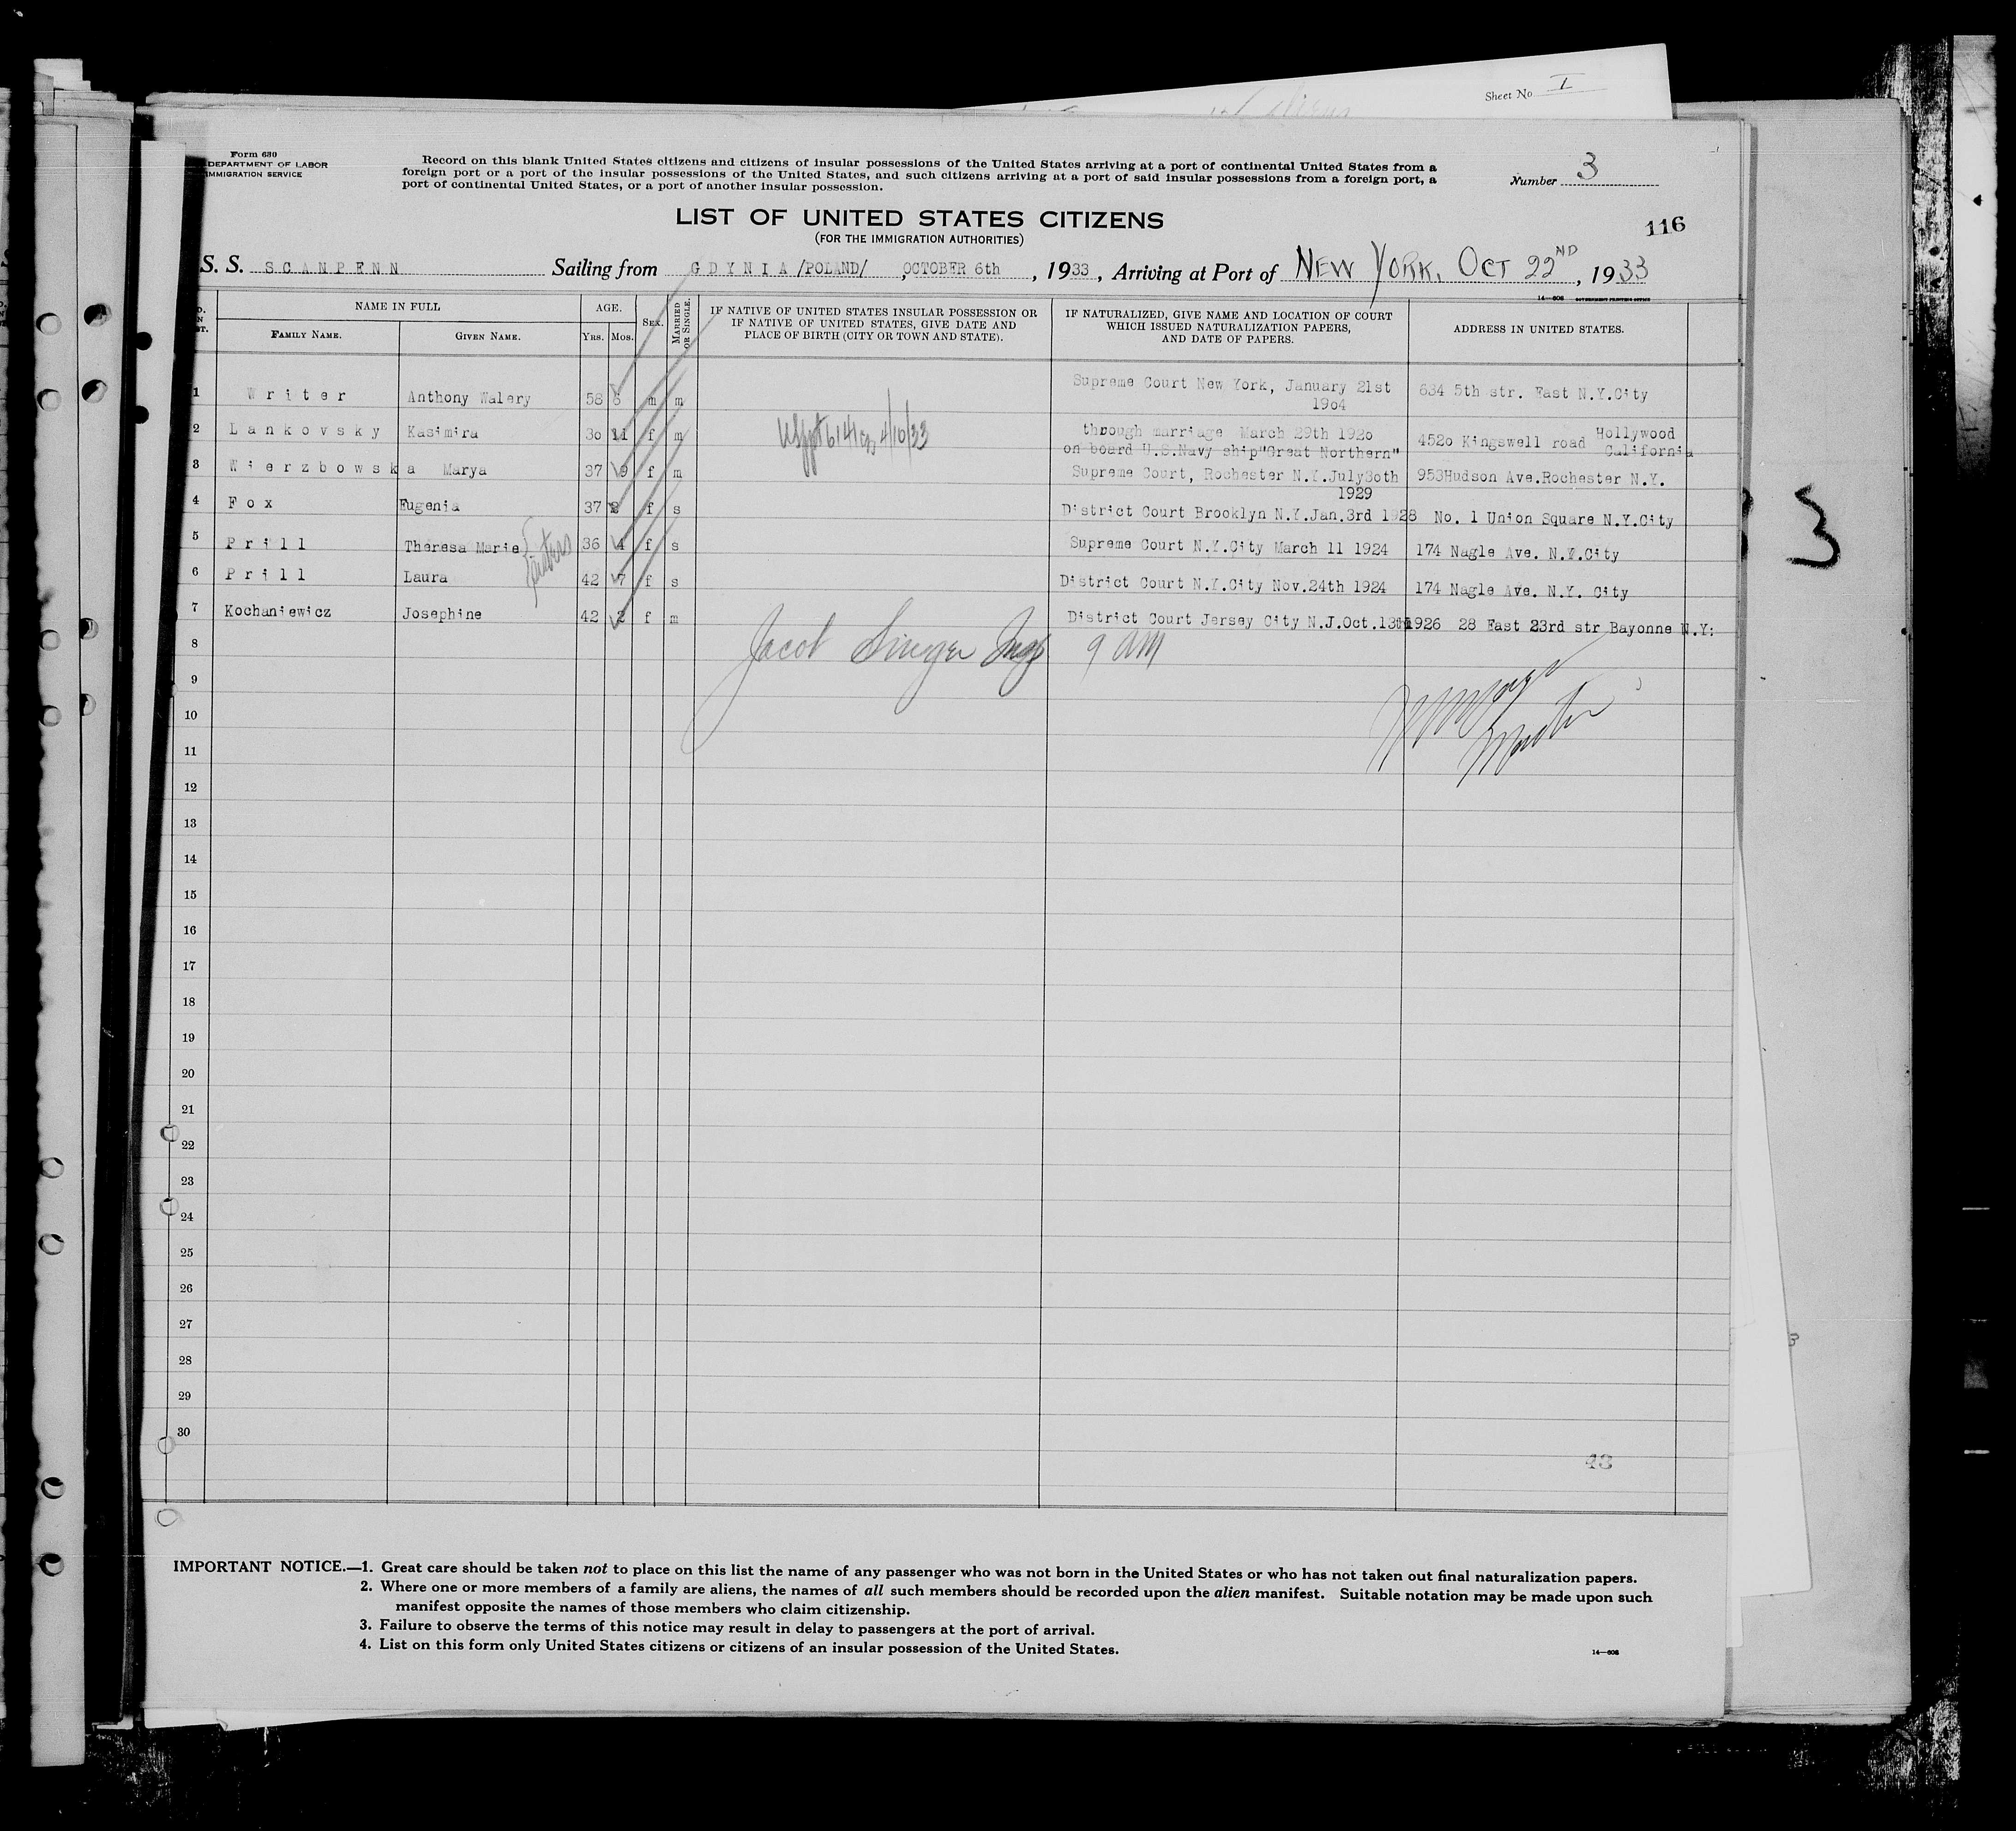 Sheet No I
Form 630
DEPARTMENT OF LABOR
IMMIGRATION SERVICE
Record on this blank United States citizens and citizens of insular possessions of the United States arriving at a port of continental United States from a
foreign port or a port of the insular possessions of the United States, and such citizens arriving at a port of said insular possessions from a foreign port, a
port of continental United States, or a port of another insular possession.
Number 3
LIST OF UNITED STATES CITIZENS
(FOR THE IMMIGRATION AUTHORITIES)
116
S. S. SCANPENN Sailing from GDYNIA /POLAND/ , OCTOBER 6th , 1933, Arriving at Port of NEW YORK, OCT 22ND, 1933
14—606 GOVERNMENT PRINTING OFFICE
NAME IN FULL
FAMILY NAME. GIVEN NAME.
AGE.
YRS. MOS.
SEX.
MARRIED OR SINGLE.
IF NATIVE OF UNITED STATES INSULAR POSSESSION OR
IF NATIVE OF UNITED STATES, GIVE DATE AND
PLACE OF BIRTH (CITY OR TOWN AND STATE).
IF NATURALIZED, GIVE NAME AND LOCATION OF COURT
WHICH ISSUED NATURALIZATION PAPERS,
AND DATE OF PAPERS.
ADDRESS IN UNITED STATES.
1 Writer Anthony Walery 58 m m Supreme Court New York, January 21st 1904 634 5th str. East N.Y.City
2 Lankovsky Kasimira 30 11 f m 4/10/33 through marriage March 29th 1920 on board U.S.Navy ship"Great Northern" 4520 Kingswell road Hollywood California
3 Wierzbowska Marya 37 9 f m Supreme Court, Rochester N.Y.July30th 1929 953Hudson Ave.Rochester N.Y.
4 Fox Eugenia 37 f s District Court Brooklyn N.Y.Jan.3rd 1928 No. 1 Union Square N.Y.City
5 Prill Theresa Marie 36 4 f s Supreme Court N.Y.City March 11 1924 174 Nagle Ave. N.Y.City
sisters
6 Prill Laura 42 7 f s District Court N.Y.City Nov.24th 1924 174 Nagle Ave. N.Y. City
7 Kochaniewicz Josephine 42 2 f m District Court Jersey City N.J.Oct.13th1926 28 East 23rd str Bayonne N.Y:
8 Jacob Singer Insp 9 AM
9
10
Master
11
12
13
14
15
16
17
18
19
20
21
22
23
24
25
26
27
28
29
30
43
IMPORTANT NOTICE.—1. Great care should be taken not to place on this list the name of any passenger who was not born in the United States or who has not taken out final naturalization papers.
2. Where one or more members of a family are aliens, the names of all such members should be recorded upon the alien manifest. Suitable notation may be made upon such
manifest opposite the names of those members who claim citizenship.
3. Failure to observe the terms of this notice may result in delay to passengers at the port of arrival.
4. List on this form only United States citizens or citizens of an insular possession of the United States.
14—606